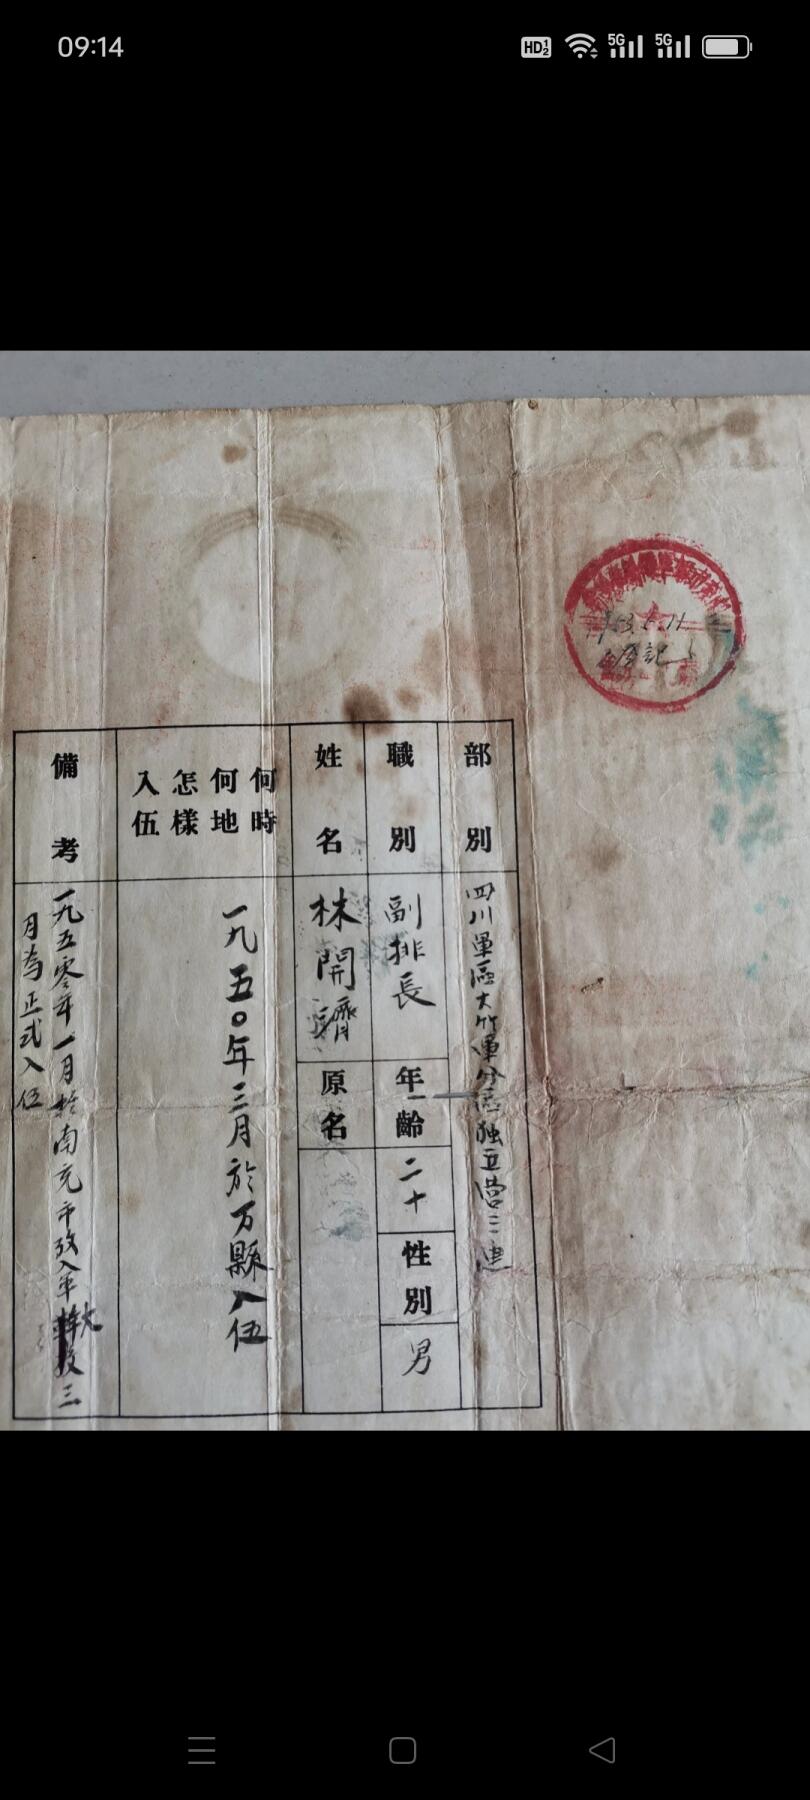 09:14
部別
四川軍區大竹軍分區独立营三連
職別
副排長
年齡
二十
性別
男
姓名
林開濟
原名
何時
何地
怎樣
入伍
一九五〇年三月於万縣入伍
備考
一九五零年一月於南充市攷入軍大
三
月為正式入伍
登記